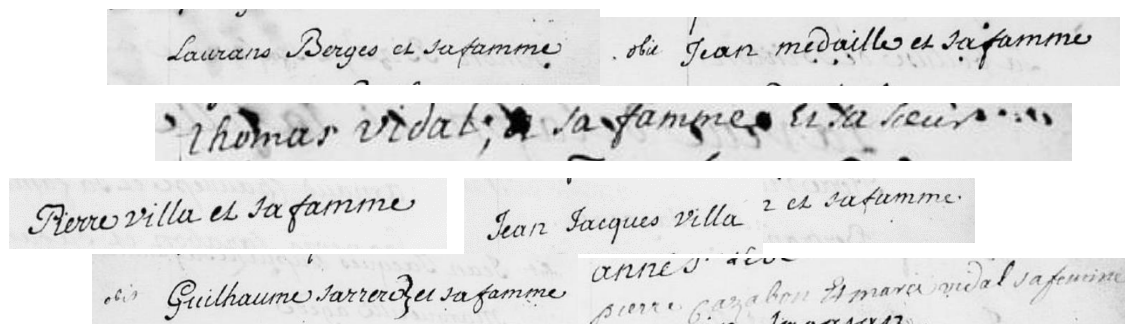 Laurans Berges et sa famme
obie Jean medaille et sa famme
thomas vidal; sa famme Et sa seur
Pierre villa et sa famme
Jean Jacques villa 2 et sa famme
obie Guilhaume sarrere et sa famme
annes
pierre Cazabon Et marie vidal sa femme